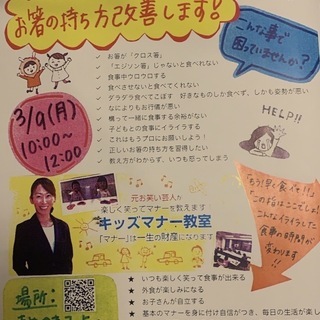 お箸の持ち方改善します!
こんな事で
困っていませんか?
お箸が「クロス箸」
「エジソン箸」じゃないと食べれない
食事中ウロウロする
食べさせないと食べてくれない
ダラダラ食べてこぼす 好きなものしか食べず、しかも姿勢が悪い
なによりもお行儀が悪い
構って一緒に食事する余裕がない
子どもとの食事にイライラする
これはもうプロにお願いしよう!
正しいお箸の持ち方を習得したい
教え方がわからず、いつも怒ってしまう
3/9(月)
10:00~
12:00
HELP!!
元お笑い芸人が
楽しく笑ってマナーを教えます!
キッズマナー教室
「マナー」は一生の財産になります
「もう!早く食べて!!」
こんなイライラした
食事の時間が
変わります!!
場所:
★ いつも楽しく笑って食事が出来る
★ 外食が楽しみになる
★ お子さんが自立する
★ 基本のマナーを身に付け自信がつき、毎日の生活が楽し